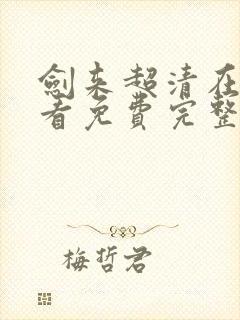 剑来超清在
看免费完整
梅哲君